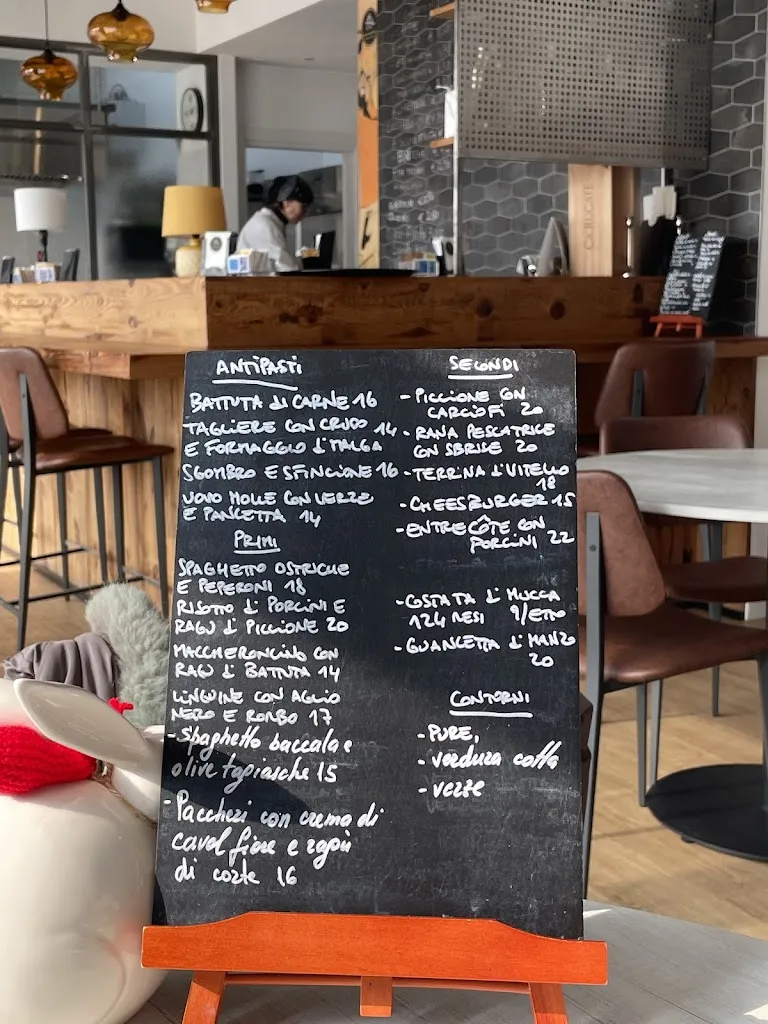 ANTIPASTI
BATTUTA DI CARNE 16
TAGLIERE CON CRUDO 14
E FORMAGGIO D'MALGA
SGOMBRO E SFINCIONE 16
UOVO MOLLE CON VERZE
E PANCETTA 14
PRIMI
SPAGHETTO OSTRICHE
E PEPERONI 18
RISOTTO D' PORCINI E
RAGÙ D' PICCIONE 20
MACCHERONCINO CON
RAGÙ D' BATTUTA 14
LINGUINE CON AGLIO
NERO E ROMBO 17
- Spaghetto baccalà e
olive taggiasche 15
- Paccheri con crema di
cavolfiore e ragù
di corte 16
SECONDI
- PICCIONE CON
CARCIOFI 20
- RANA PESCATRICE
CON SBRISE 20
- TERRINA D'VITELLO
18
- CHEESBURGER 15
- ENTRECÔTE CON
PORCINI 22
- COSTATA D'MUCCA
124 MESI 9/ETTO
- GUANCETTA D'MANZO
20
CONTORNI
- PURE,
- verdura cotta
- verze